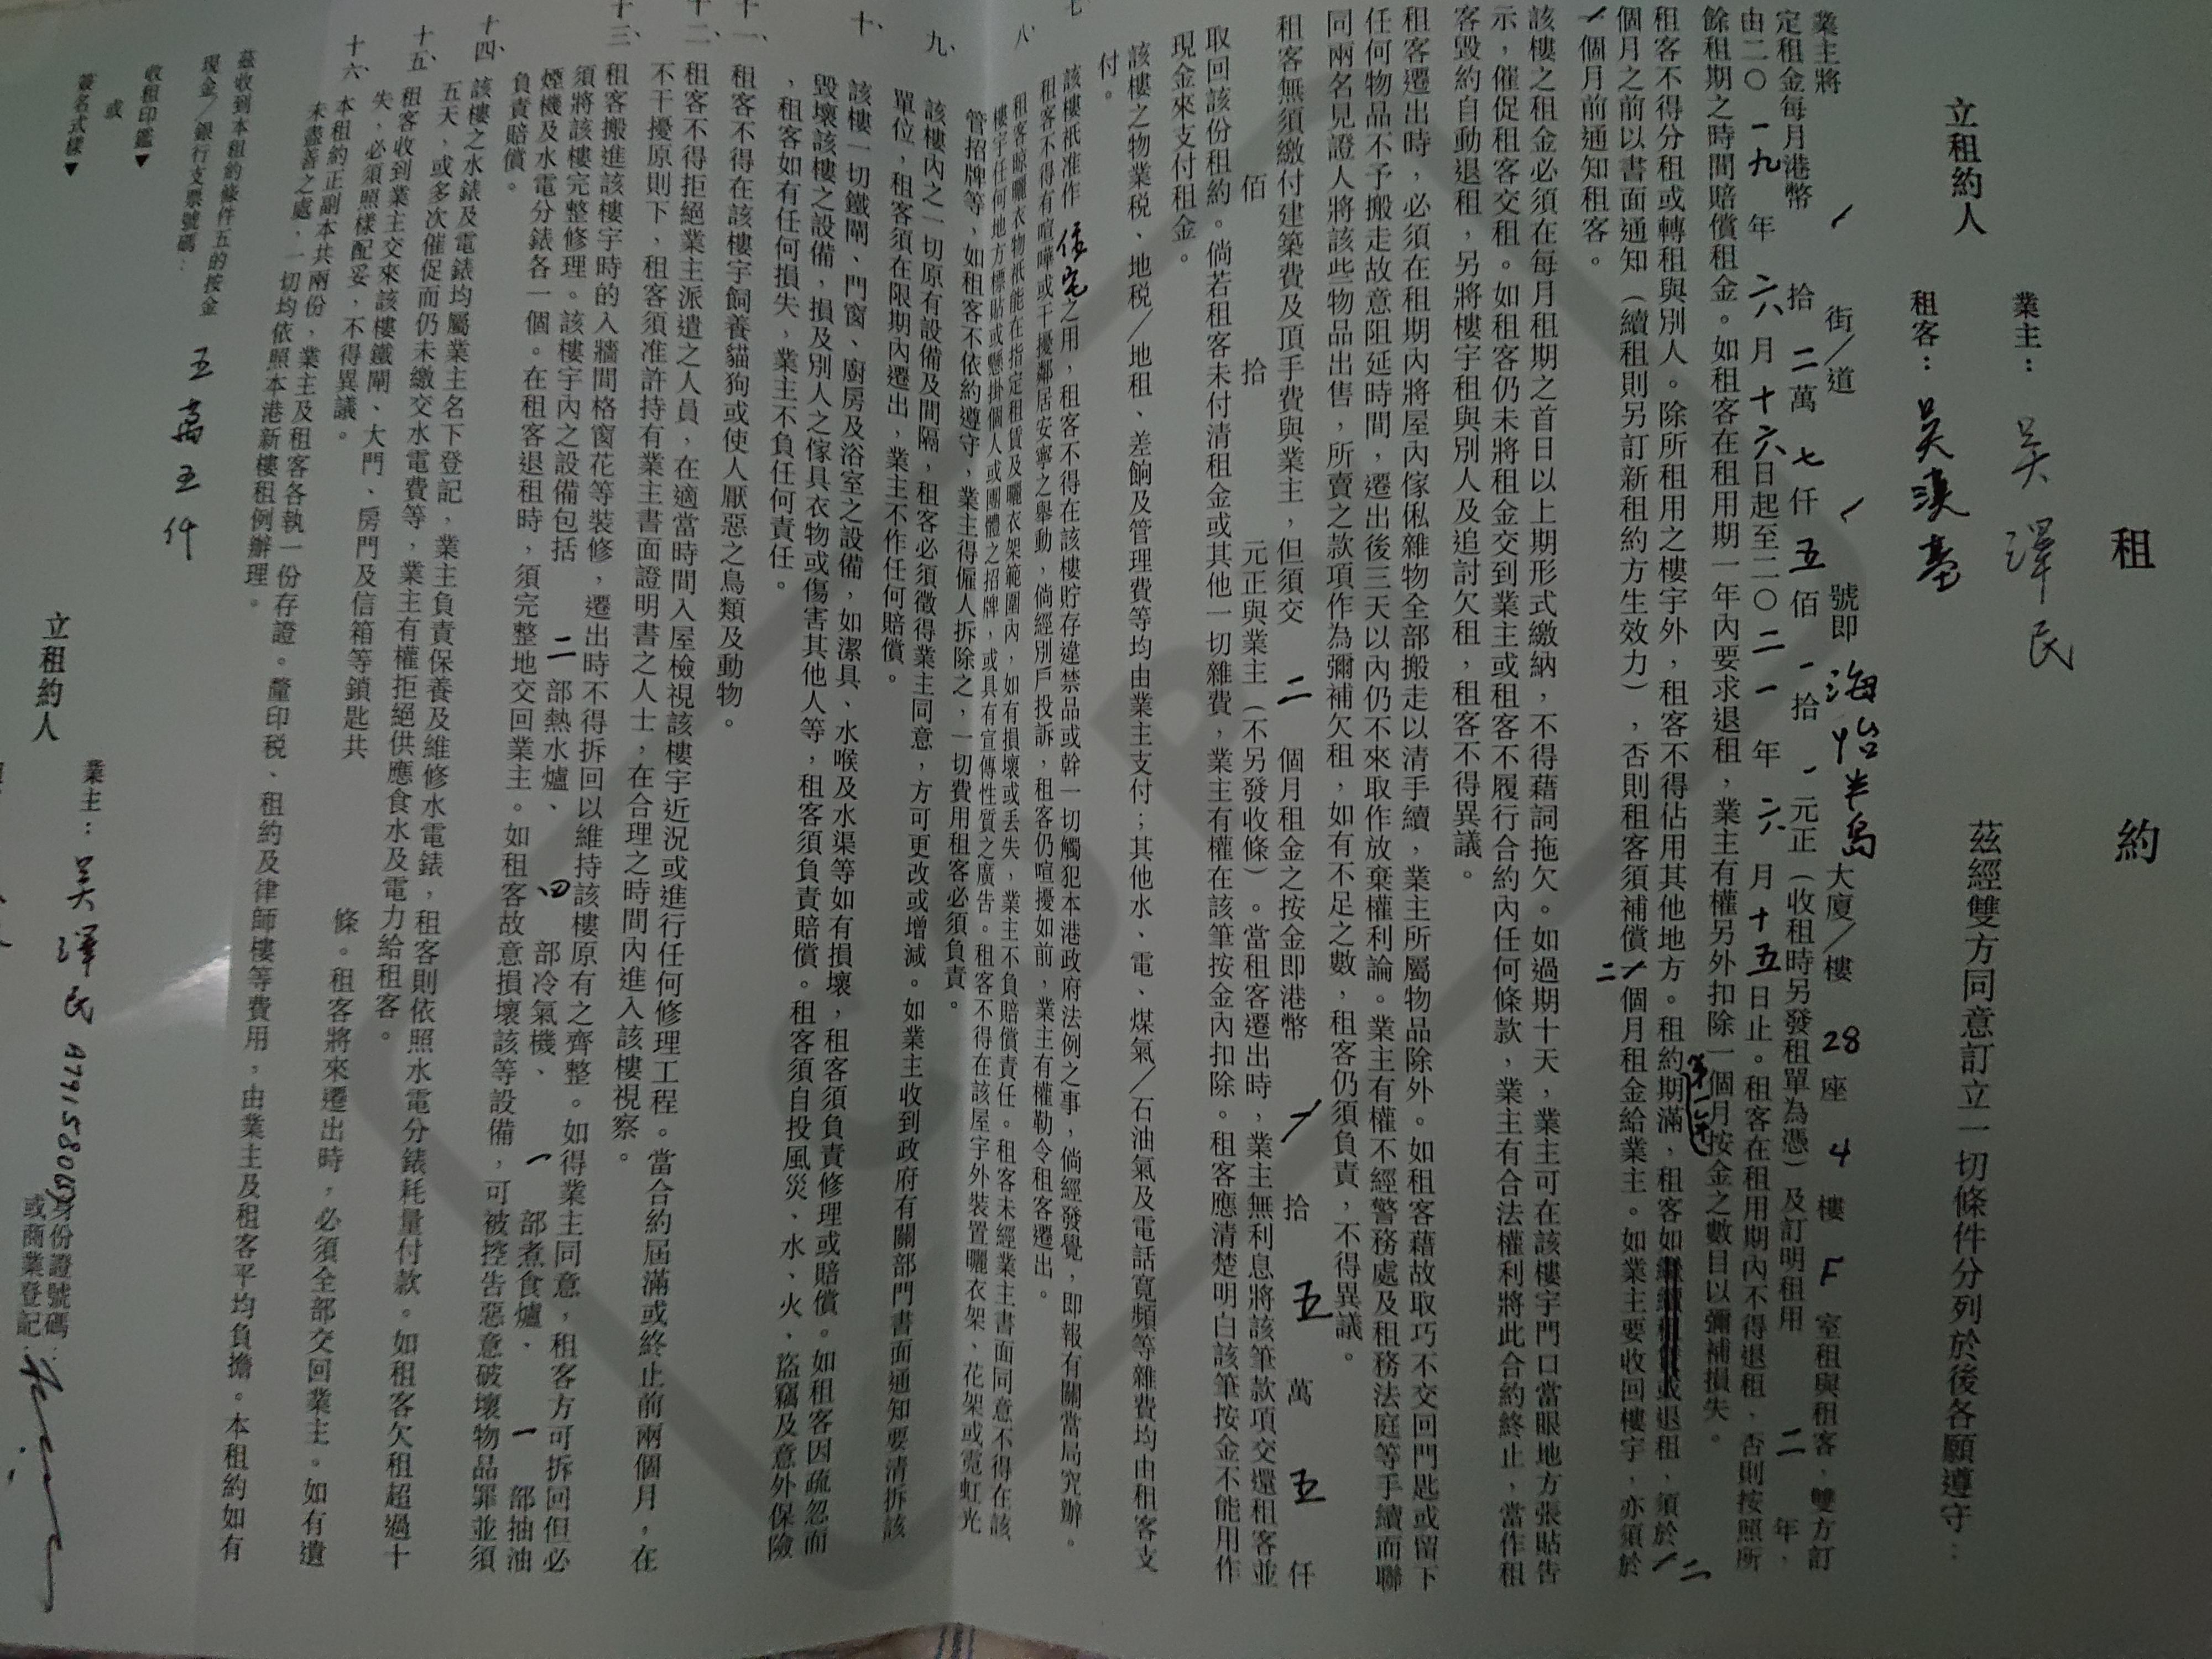 租 約
立租約人
業主：吳澤民
租客：吳漢
茲經雙方同意訂立一切條件分列於後各願遵守：
業主將 街／道 號即 海怡半島 大廈／樓 28 座 4 樓 F 室租與租客，雙方訂
定租金每月港幣 拾 二 萬 七 仟 五 佰 拾 元正（收租時另發租單為憑）及訂明租用 二 年，
由二〇一九年六月十六日起至二〇二一年六月十五日止。租客在租用期內不得退租，否則按照所
餘租期之時間賠償租金。如租客在租用期一年內要求退租，業主有權另外扣除一個月按金之數目以彌補損失。
租客不得分租或轉租與別人。除所租用之樓宇外，租客不得佔用其他地方。租約期滿，租客如 或退租，須於 二
個月之前以書面通知（續租則另訂新租約方生效力），否則租客須補償 二 個月租金給業主。如業主要收回樓宇，亦須於
個月前通知租客。
該樓之租金必須在每月租期之首日以上期形式繳納，不得藉詞拖欠。如過期十天，業主可在該樓宇門口當眼地方張貼告
示，催促租客交租。如租客仍未將租金交到業主或租客不履行合約內任何條款，業主有合法權利將此合約終止，當作租
客毀約自動退租，另將樓宇租與別人及追討欠租，租客不得異議。
租客遷出時，必須在租期內將屋內傢俬雜物全部搬走以清手續，業主所屬物品除外。如租客藉故取巧不交回門匙或留下
任何物品不予搬走故意阻延時間，遷出後三天以內仍不來取作放棄權利論。業主有權不經警務處及租務法庭等手續而聯
同兩名見證人將該些物品出售，所賣之款項作為彌補欠租，如有不足之數，租客仍須負責，不得異議。
租客無須繳付建築費及頂手費與業主，但須交 二 個月租金之按金即港幣 拾 五 萬 五 仟
佰 拾 元正與業主（不另發收條）。當租客遷出時，業主無利息將該筆款項交還租客並
取回該份租約。倘若租客未付清租金或其他一切雜費，業主有權在該筆按金內扣除。租客應清楚明白該筆按金不能用作
現金來支付租金。
該樓之物業税、地税／地租、差餉及管理費等均由業主支付；其他水、電、煤氣／石油氣及電話寬頻等雜費均由租客支
付。
七、該樓衹准作 住宅 之用，租客不得在該樓貯存違禁品或幹一切觸犯本港政府法例之事，倘經發覺，即報有關當局究辦。
租客不得有喧嘩或干擾鄰居安寧之舉動，倘經別戶投訴，租客仍喧擾如前，業主有權勒令租客遷出。
八、租客晾曬衣物衹能在指定租賃及曬衣架範圍內，如有損壞或丟失，業主不負賠償責任。租客未經業主書面同意不得在該
樓宇任何地方標貼或懸掛個人或團體之招牌，或具有宣傳性質之廣告。租客不得在該屋宇外裝置曬衣架、花架或霓虹光
管招牌等，如租客不依約遵守，業主得僱人拆除之，一切費用租客必須負責。
九、該樓內之一切原有設備及間隔，租客必須徵得業主同意，方可更改或增減。如業主收到政府有關部門書面通知要清拆該
單位，租客須在限期內遷出，業主不作任何賠償。
十、該樓一切鐵閘、門窗、廚房及浴室之設備，如潔具、水喉及水渠等如有損壞，租客須負責修理或賠償。如租客因疏忽而
毀壞該樓之設備，損及別人之傢具衣物或傷害其他人等，租客須負責賠償。租客須自投風災、水、火、盜竊及意外保險
，租客如有任何損失，業主不負任何責任。
十一、租客不得在該樓宇飼養貓狗或使人厭惡之鳥類及動物。
十二、租客不得拒絕業主派遣之人員，在適當時間入屋檢視該樓宇近況或進行任何修理工程。當合約屆滿或終止前兩個月，在
不干擾原則下，租客須准許持有業主書面證明書之人士，在合理之時間內進入該樓視察。
十三、租客搬進該樓宇時的入牆間格窗花等裝修，遷出時不得拆回以維持該樓原有之齊整。如得業主同意，租客方可拆回但必
須將該樓完整修理。該樓宇內之設備包括 二 部熱水爐、 四 部冷氣機、 一 部煮食爐、 一 部抽油
煙機及水電分錶各一個。在租客退租時，須完整地交回業主。如租客故意損壞該等設備，可被控告惡意破壞物品罪並須
負責賠償。
十四、該樓之水錶及電錶均屬業主名下登記，業主負責保養及維修水電錶，租客則依照水電分錶耗量付款。如租客欠租超過十
五天，或多次催促而仍未繳交水電費等，業主有權拒絕供應食水及電力給租客。
十五、租客收到業主交來該樓鐵閘、大門、房門及信箱等鎖匙共 條。租客將來遷出時，必須全部交回業主。如有遺
失，必須照樣配妥，不得異議。
十六、本租約正副本共兩份，業主及租客各執一份存證。釐印税、租約及律師樓等費用，由業主及租客平均負擔。本租約如有
未盡善之處，一切均依照本港新樓租例辦理。
茲收到本租約條件五的按金
現金／銀行支票號碼： 五萬五仟
收租印鑑▼
或
簽名式樣▼
立租約人
業主：吳澤民 A791580(6)
身份證號碼
或商業登記：